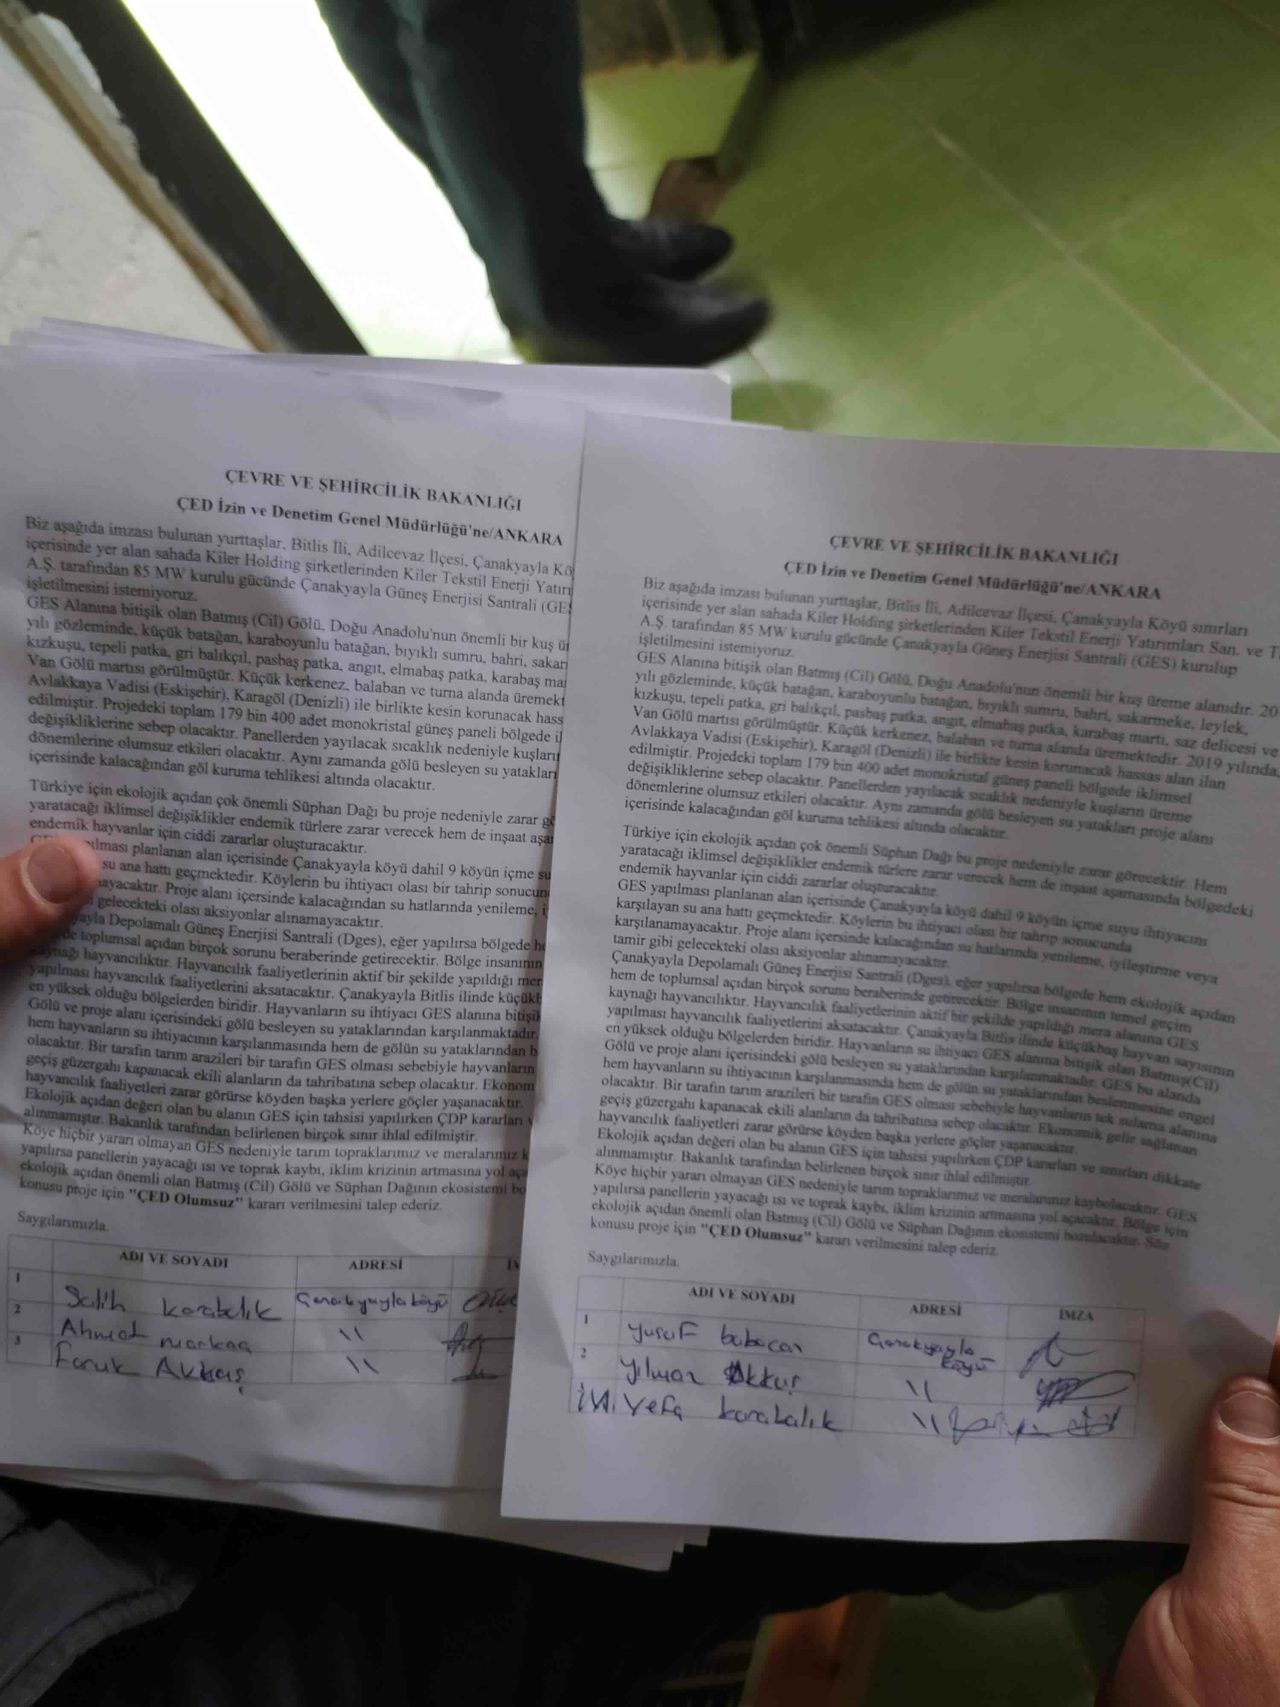 ÇEVRE VE ŞEHİRCİLİK BAKANLIĞI
ÇED İzin ve Denetim Genel Müdürlüğü'ne/ANKARA
Biz aşağıda imzası bulunan yurttaşlar, Bitlis İli, Adilcevaz İlçesi, Çanakyayla Kö
içerisinde yer alan sahada Kiler Holding şirketlerinden Kiler Tekstil Enerji Yatırı
A.Ş. tarafından 85 MW kurulu gücünde Çanakyayla Güneş Enerjisi Santrali (GES
işletilmesini istemiyoruz.
GES Alanına bitişik olan Batmış (Cil) Gölü, Doğu Anadolu'nun önemli bir kuş ür
yılı gözleminde, küçük batağan, karaboyunlu batağan, bıyıklı sumru, bahri, sakar
kızkuşu, tepeli patka, gri balıkçıl, pasbaş patka, angıt, elmabaş patka, karabaş mar
Van Gölü martısı görülmüştür. Küçük kerkenez, balaban ve turna alanda üremekt
Avlakkaya Vadisi (Eskişehir), Karagöl (Denizli) ile birlikte kesin korunacak hass
edilmiştir. Projedeki toplam 179 bin 400 adet monokristal güneş paneli bölgede i
değişikliklerine sebep olacaktır. Panellerden yayılacak sıcaklık nedeniyle kuşların
dönemlerine olumsuz etkileri olacaktır. Aynı zamanda gölü besleyen su yatakları
içerisinde kalacağından göl kuruma tehlikesi altında olacaktır.
Türkiye için ekolojik açıdan çok önemli Süphan Dağı bu proje nedeniyle zarar gö
yaratacağı iklimsel değişiklikler endemik türlere zarar verecek hem de inşaat aşa
endemik hayvanlar için ciddi zararlar oluşturacaktır.
ılması planlanan alan içerisinde Çanakyayla köyü dahil 9 köyün içme su
su ana hattı geçmektedir. Köylerin bu ihtiyacı olası bir tahrip sonucun
ayacaktır. Proje alanı içersinde kalacağından su hatlarında yenileme, iy
gelecekteki olası aksiyonlar alınamayacaktır.
yayla Depolamalı Güneş Enerjisi Santrali (Dges), eğer yapılırsa bölgede he
de toplumsal açıdan birçok sorunu beraberinde getirecektir. Bölge insanının
kaynağı hayvancılıktır. Hayvancılık faaliyetlerinin aktif bir şekilde yapıldığı mer
yapılması hayvancılık faaliyetlerini aksatacaktır. Çanakyayla Bitlis ilinde küçükb
en yüksek olduğu bölgelerden biridir. Hayvanların su ihtiyacı GES alanına bitişik
Gölü ve proje alanı içerisindeki gölü besleyen su yataklarından karşılanmaktadır.
hem hayvanların su ihtiyacının karşılanmasında hem de gölün su yataklarından b
olacaktır. Bir tarafın tarım arazileri bir tarafın GES olması sebebiyle hayvanların
geçiş güzergahı kapanacak ekili alanların da tahribatına sebep olacaktır. Ekonom
hayvancılık faaliyetleri zarar görürse köyden başka yerlere göçler yaşanacaktır.
Ekolojik açıdan değeri olan bu alanın GES için tahsisi yapılırken ÇDP kararları v
alınmamıştır. Bakanlık tarafından belirlenen birçok sınır ihlal edilmiştir.
Köye hiçbir yararı olmayan GES nedeniyle tarım topraklarımız ve meralarımız k
yapılırsa panellerin yayacağı ısı ve toprak kaybı, iklim krizinin artmasına yol aça
ekolojik açıdan önemli olan Batmış (Cil) Gölü ve Süphan Dağının ekosistemi bo
konusu proje için "ÇED Olumsuz" kararı verilmesini talep ederiz.
Saygılarımızla.
ADI VE SOYADI ADRESİ İM
1 Salih karabalık Çanakyayla köyü
2 Ahmet \\
3 Faruk Akkuş \\
ÇEVRE VE ŞEHİRCİLİK BAKANLIĞI
ÇED İzin ve Denetim Genel Müdürlüğü'ne/ANKARA
Biz aşağıda imzası bulunan yurttaşlar, Bitlis İli, Adilcevaz İlçesi, Çanakyayla Köyü sınırları
içerisinde yer alan sahada Kiler Holding şirketlerinden Kiler Tekstil Enerji Yatırımları San. ve T
A.Ş. tarafından 85 MW kurulu gücünde Çanakyayla Güneş Enerjisi Santrali (GES) kurulup
işletilmesini istemiyoruz.
GES Alanına bitişik olan Batmış (Cil) Gölü, Doğu Anadolu'nun önemli bir kuş üreme alanıdır. 20
yılı gözleminde, küçük batağan, karaboyunlu batağan, bıyıklı sumru, bahri, sakarmeke, leylek,
kızkuşu, tepeli patka, gri balıkçıl, pasbaş patka, angıt, elmabaş patka, karabaş martı, saz delicesi ve
Van Gölü martısı görülmüştür. Küçük kerkenez, balaban ve turna alanda üremektedir. 2019 yılında,
Avlakkaya Vadisi (Eskişehir), Karagöl (Denizli) ile birlikte kesin korunacak hassas alan ilan
edilmiştir. Projedeki toplam 179 bin 400 adet monokristal güneş paneli bölgede iklimsel
değişikliklerine sebep olacaktır. Panellerden yayılacak sıcaklık nedeniyle kuşların üreme
dönemlerine olumsuz etkileri olacaktır. Aynı zamanda gölü besleyen su yatakları proje alanı
içerisinde kalacağından göl kuruma tehlikesi altında olacaktır.
Türkiye için ekolojik açıdan çok önemli Süphan Dağı bu proje nedeniyle zarar görecektir. Hem
yaratacağı iklimsel değişiklikler endemik türlere zarar verecek hem de inşaat aşamasında bölgedeki
endemik hayvanlar için ciddi zararlar oluşturacaktır.
GES yapılması planlanan alan içerisinde Çanakyayla köyü dahil 9 köyün içme suyu ihtiyacını
karşılayan su ana hattı geçmektedir. Köylerin bu ihtiyacı olası bir tahrip sonucunda
karşılanamayacaktır. Proje alanı içersinde kalacağından su hatlarında yenileme, iyileştirme veya
tamir gibi gelecekteki olası aksiyonlar alınamayacaktır.
Çanakyayla Depolamalı Güneş Enerjisi Santrali (Dges), eğer yapılırsa bölgede hem ekolojik açıdan
hem de toplumsal açıdan birçok sorunu beraberinde getirecektir. Bölge insanının temel geçim
kaynağı hayvancılıktır. Hayvancılık faaliyetlerinin aktif bir şekilde yapıldığı mera alanına GES
yapılması hayvancılık faaliyetlerini aksatacaktır. Çanakyayla Bitlis ilinde küçükbaş hayvan sayısının
en yüksek olduğu bölgelerden biridir. Hayvanların su ihtiyacı GES alanına bitişik olan Batmış(Cil)
Gölü ve proje alanı içerisindeki gölü besleyen su yataklarından karşılanmaktadır. GES bu alanda
hem hayvanların su ihtiyacının karşılanmasında hem de gölün su yataklarından beslenmesine engel
olacaktır. Bir tarafın tarım arazileri bir tarafın GES olması sebebiyle hayvanların tek sulama alanına
geçiş güzergahı kapanacak ekili alanların da tahribatına sebep olacaktır. Ekonomik gelir sağlanan
hayvancılık faaliyetleri zarar görürse köyden başka yerlere göçler yaşanacaktır.
Ekolojik açıdan değeri olan bu alanın GES için tahsisi yapılırken ÇDP kararları ve sınırları dikkate
alınmamıştır. Bakanlık tarafından belirlenen birçok sınır ihlal edilmiştir.
Köye hiçbir yararı olmayan GES nedeniyle tarım topraklarımız ve meralarımız kaybolacaktır. GES
yapılırsa panellerin yayacağı ısı ve toprak kaybı, iklim krizinin artmasına yol açacaktır. Bölge için
ekolojik açıdan önemli olan Batmış (Cil) Gölü ve Süphan Dağının ekosistemi bozulacaktır. Söz
konusu proje için "ÇED Olumsuz" kararı verilmesini talep ederiz.
Saygılarımızla.
ADI VE SOYADI ADRESİ İMZA
1 Yusuf babacan Çanakyayla köyü
2 Yılmaz Akkuş \\
Vefa karabalık \\